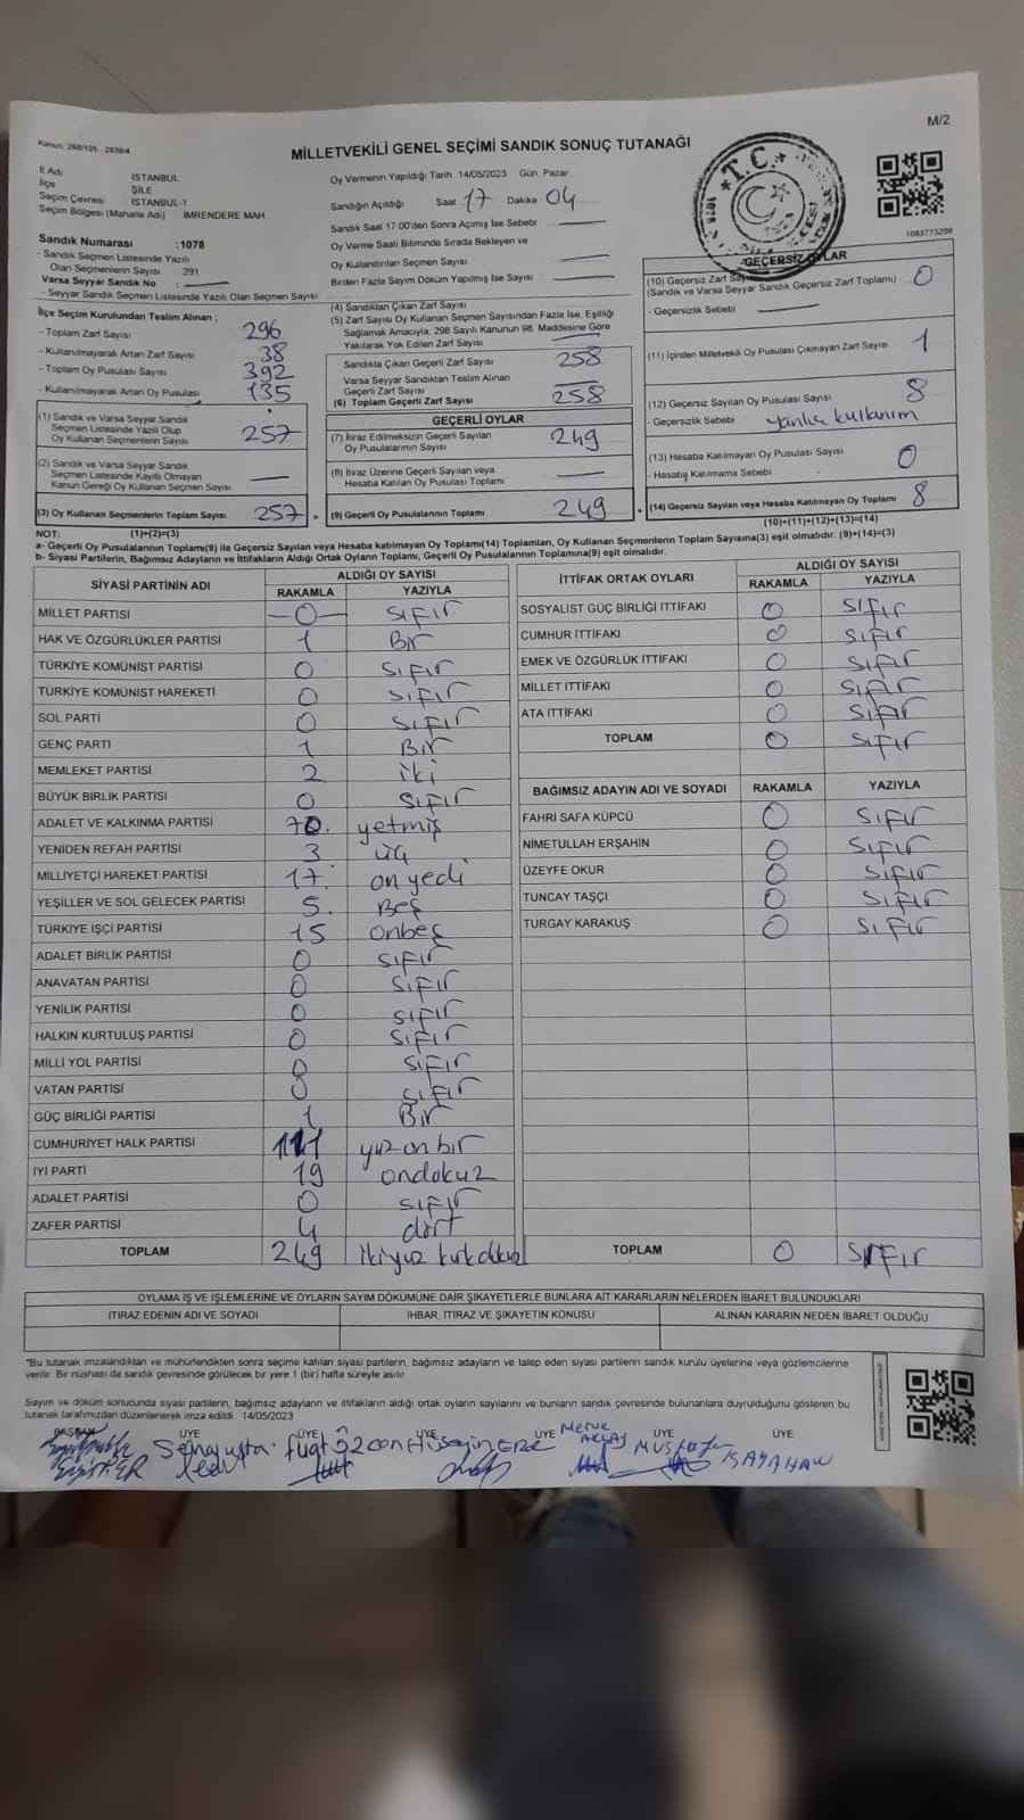 Kanun: 298/105 - 2839/4
M/2
MİLLETVEKİLİ GENEL SEÇİMİ SANDIK SONUÇ TUTANAĞI
İl Adı İSTANBUL
İlçe ŞİLE
Seçim Çevresi İSTANBUL-1
Seçim Bölgesi (Mahalle Adı) İMRENDERE MAH
Oy Vermenin Yapıldığı Tarih :14/05/2023 Gün Pazar
Sandığın Açıldığı Saat 17 Dakika 04
Sandık Saat 17.00'den Sonra Açılmış İse Sebebi
Oy Verme Saati Bitiminde Sırada Bekleyen ve
Oy Kullandırılan Seçmen Sayısı
Birden Fazla Sayım Döküm Yapılmış İse Sayısı
T.C.
1083773208
Sandık Numarası :1078
- Sandık Seçmen Listesinde Yazılı
Olan Seçmenlerin Sayısı 291
Varsa Seyyar Sandık No :
- Seyyar Sandık Seçmen Listesinde Yazılı Olan Seçmen Sayısı
İlçe Seçim Kurulundan Teslim Alınan ;
- Toplam Zarf Sayısı 296
- Kullanılmayarak Artan Zarf Sayısı 38
- Toplam Oy Pusulası Sayısı 392
- Kullanılmayarak Artan Oy Pusulası 135
(1) Sandık ve Varsa Seyyar Sandık
Seçmen Listesinde Yazılı Olup
Oy Kullanan Seçmenlerin Sayısı 257
(2) Sandık ve Varsa Seyyar Sandık
Seçmen Listesinde Kayıtlı Olmayan
Kanun Gereği Oy Kullanan Seçmen Sayısı
(3) Oy Kullanan Seçmenlerin Toplam Sayısı 257
(4) Sandıktan Çıkan Zarf Sayısı
(5) Zarf Sayısı Oy Kullanan Seçmen Sayısından Fazla İse, Eşitliği
Sağlamak Amacıyla; 298 Sayılı Kanunun 98. Maddesine Göre
Yakılarak Yok Edilen Zarf Sayısı
Sandıkta Çıkan Geçerli Zarf Sayısı 258
Varsa Seyyar Sandıktan Teslim Alınan
Geçerli Zarf Sayısı
(6) Toplam Geçerli Zarf Sayısı 258
GEÇERLİ OYLAR
(7) İtiraz Edilmeksizin Geçerli Sayılan
Oy Pusulalarının Sayısı 249
(8) İtiraz Üzerine Geçerli Sayılan veya
Hesaba Katılan Oy Pusulası Toplamı
(9) Geçerli Oy Pusulalarının Toplamı 249
GEÇERSİZ OYLAR
(10) Geçersiz Zarf Sayısı 0
(Sandık ve Varsa Seyyar Sandık Geçersiz Zarf Toplamı)
- Geçersizlik Sebebi
(11) İçinden Milletvekili Oy Pusulası Çıkmayan Zarf Sayısı 1
(12) Geçersiz Sayılan Oy Pusulası Sayısı 8
- Geçersizlik Sebebi yanlış kullanım
(13) Hesaba Katılmayan Oy Pusulası Sayısı 0
- Hesaba Katılmama Sebebi
(14) Geçersiz Sayılan veya Hesaba Katılmayan Oy Toplamı 8
NOT: (1)+(2)=(3) (10)+(11)+(12)+(13)=(14)
a- Geçerli Oy Pusulalarının Toplamı(9) ile Geçersiz Sayılan veya Hesaba katılmayan Oy Toplamı(14) Toplamları, Oy Kullanan Seçmenlerin Toplam Sayısına(3) eşit olmalıdır. (9)+(14)=(3)
b- Siyasi Partilerin, Bağımsız Adayların ve İttifakların Aldığı Ortak Oyların Toplamı, Geçerli Oy Pusulalarının Toplamına(9) eşit olmalıdır.
SİYASİ PARTİNİN ADI ALDIĞI OY SAYISI
RAKAMLA YAZIYLA
MİLLET PARTİSİ 0 SIFIR
HAK VE ÖZGÜRLÜKLER PARTİSİ 1 Bir
TÜRKİYE KOMÜNİST PARTİSİ 0 SIFIR
TÜRKİYE KOMÜNİST HAREKETİ 0 SIFIR
SOL PARTİ 0 SIFIR
GENÇ PARTİ 1 Bir
MEMLEKET PARTİSİ 2 iki
BÜYÜK BİRLİK PARTİSİ 0 SIFIR
ADALET VE KALKINMA PARTİSİ 70. yetmiş
YENİDEN REFAH PARTİSİ 3 üç
MİLLİYETÇİ HAREKET PARTİSİ 17. on yedi
YEŞİLLER VE SOL GELECEK PARTİSİ 5. Beş
TÜRKİYE İŞÇİ PARTİSİ 15 onbeş
ADALET BİRLİK PARTİSİ 0 SIFIR
ANAVATAN PARTİSİ 0 SIFIR
YENİLİK PARTİSİ 0 SIFIR
HALKIN KURTULUŞ PARTİSİ 0 SIFIR
MİLLİ YOL PARTİSİ 0 SIFIR
VATAN PARTİSİ 0 SIFIR
GÜÇ BİRLİĞİ PARTİSİ 1 Bir
CUMHURİYET HALK PARTİSİ 111 yuz on bir
İYİ PARTİ 19 ondokuz
ADALET PARTİSİ 0 SIFIR
ZAFER PARTİSİ 4 dört
TOPLAM 249 ikiyuz kırk dokuz
İTTİFAK ORTAK OYLARI ALDIĞI OY SAYISI
RAKAMLA YAZIYLA
SOSYALİST GÜÇ BİRLİĞİ İTTİFAKI 0 SIFIR
CUMHUR İTTİFAKI 0 SIFIR
EMEK VE ÖZGÜRLÜK İTTİFAKI 0 SIFIR
MİLLET İTTİFAKI 0 SIFIR
ATA İTTİFAKI 0 SIFIR
TOPLAM 0 SIFIR
BAĞIMSIZ ADAYIN ADI VE SOYADI RAKAMLA YAZIYLA
FAHRİ SAFA KÜPCÜ 0 SIFIR
NİMETULLAH ERŞAHİN 0 SIFIR
ÜZEYFE OKUR 0 SIFIR
TUNCAY TAŞÇI 0 SIFIR
TURGAY KARAKUŞ 0 SIFIR
TOPLAM 0 SIFIR
OYLAMA İŞ VE İŞLEMLERİNE VE OYLARIN SAYIM DÖKÜMÜNE DAİR ŞİKAYETLERLE BUNLARA AİT KARARLARIN NELERDEN İBARET BULUNDUKLARI
İTİRAZ EDENİN ADI VE SOYADI İHBAR, İTİRAZ VE ŞİKAYETİN KONUSU ALINAN KARARIN NEDEN İBARET OLDUĞU
"Bu tutanak imzalandıktan ve mühürlendikten sonra seçime katılan siyasi partilerin, bağımsız adayların ve talep eden siyasi partilerin sandık kurulu üyelerine veya gözlemcilerine
verilir. Bir nüshası da sandık çevresinde görülecek bir yere 1 (bir) hafta süreyle asılır
Sayım ve döküm sonucunda siyasi partilerin, bağımsız adayların ve ittifakların aldığı ortak oyların sayılarını ve bunların sandık çevresinde bulunanlara duyrulduğunu gösteren bu
tutanak tarafımızdan düzenlenerek imza edildi. 14/05/2023
BAŞKAN ÜYE ÜYE ÜYE ÜYE ÜYE ÜYE